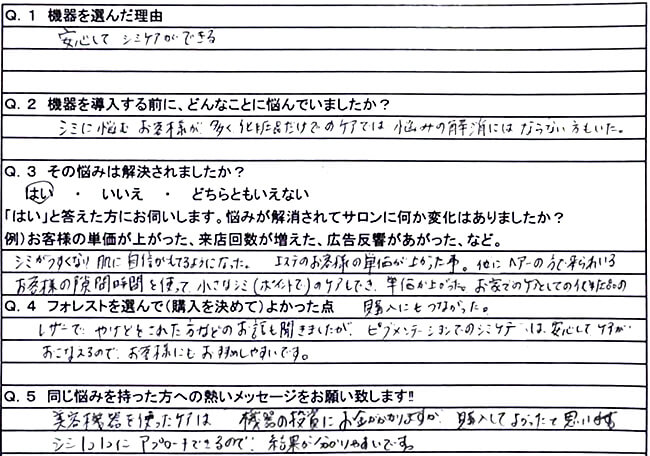 Q.1 機器を選んだ理由
安心して シミケアができる
Q.2 機器を導入する前に、どんなことに悩んでいましたか？
シミに悩む お客様が 多く 化粧品だけでのケアでは 悩みの解消には ならない方もいた。
Q.3 その悩みは解決されましたか？
はい ・ いいえ ・ どちらともいえない
「はい」と答えた方にお伺いします。悩みが解消されてサロンに何か変化はありましたか？
例）お客様の単価が上がった、来店回数が増えた、広告反響があがった、など。
シミがうすくなり 肌に自信がもてるようになった。 エステのお客様の単価が上がった事。 他に ヘアーの方で来られている
お客様の隙間時間を使って 小さなシミ（ポイントで）のケアもでき、 単価が上がった。 お家でのケアとしての化粧品の
Q.4 フォレストを選んで（購入を決めて）よかった点 購入にもつながった。
レザーで やけどをされた方などのお話も聞きましたが、 ピグメンテーションでのシミケアは、安心してケアが
おこなえるので、お客様にも お勧めしやすいです。
Q.5 同じ悩みを持った方への熱いメッセージをお願い致します!!
美容機器を使ったケアは 機器の投資に お金がかかりますが 購入して よかったと 思います
シミ1つ1つに アプローチできるので、 結果が分かりやすいです。